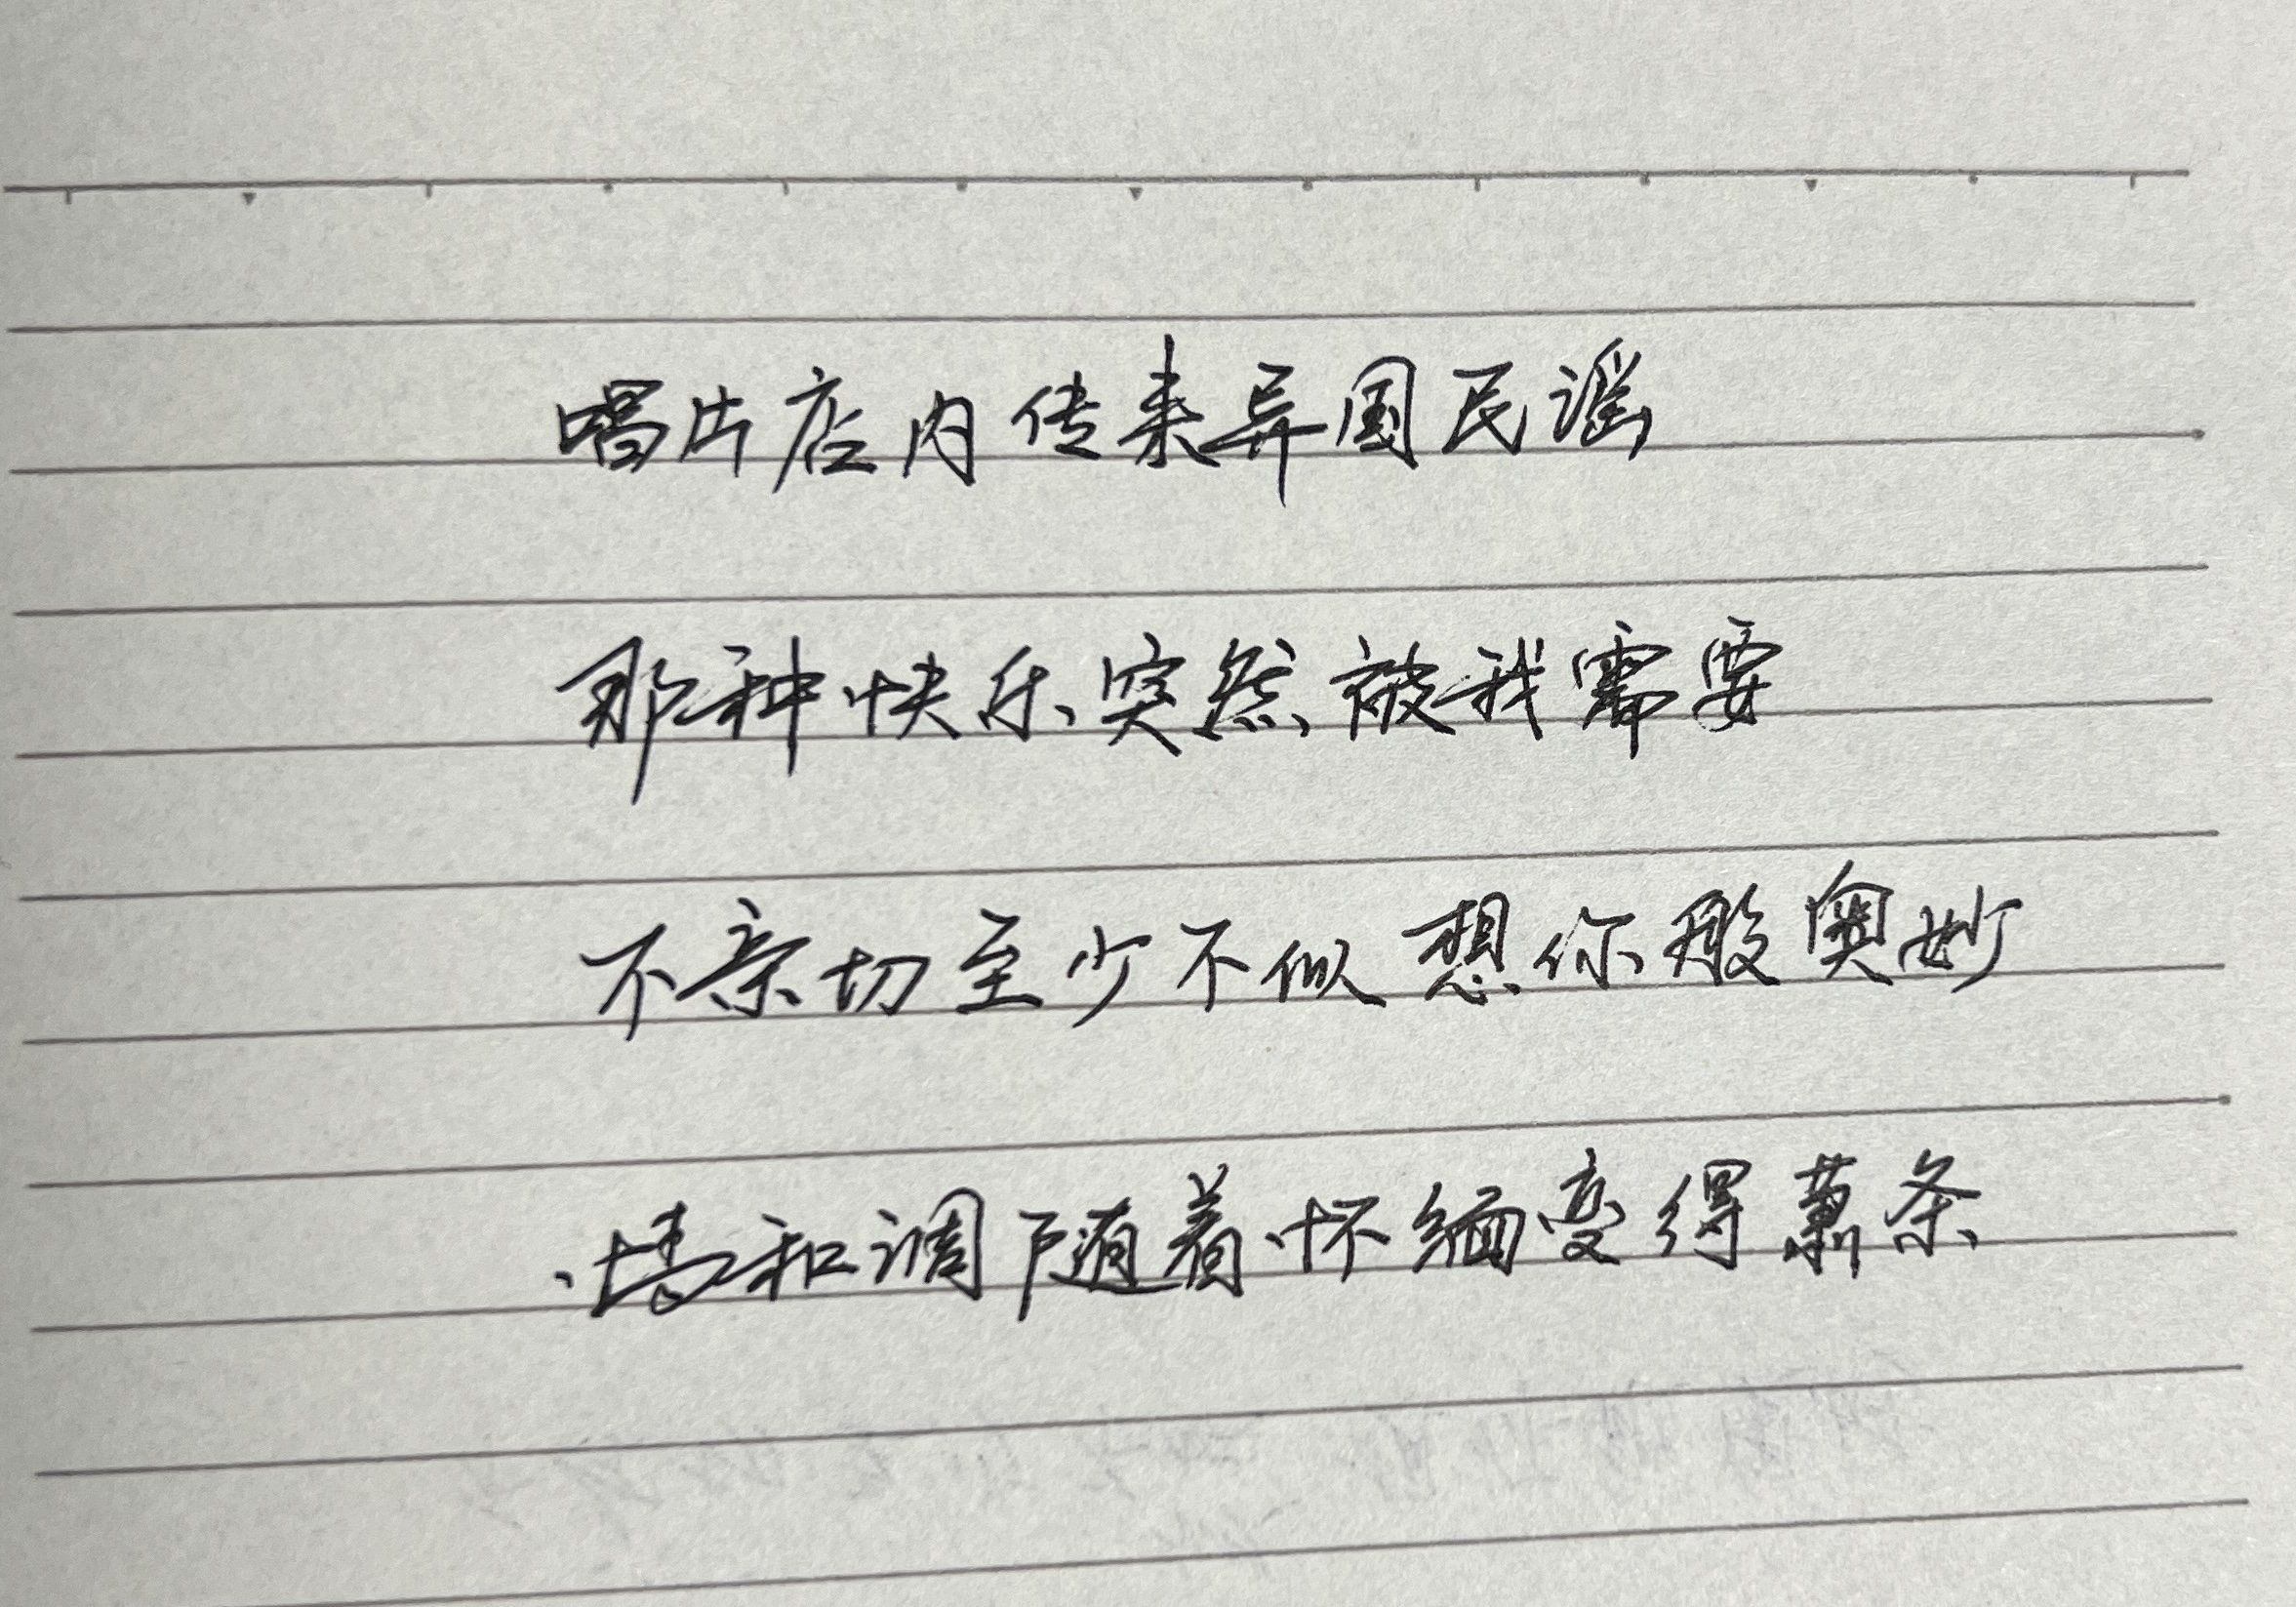 唱片店内传来异国民谣
那种快乐突然被我需要
不亲切至少不似想你般奥妙
情和调随着怀缅变得萧条